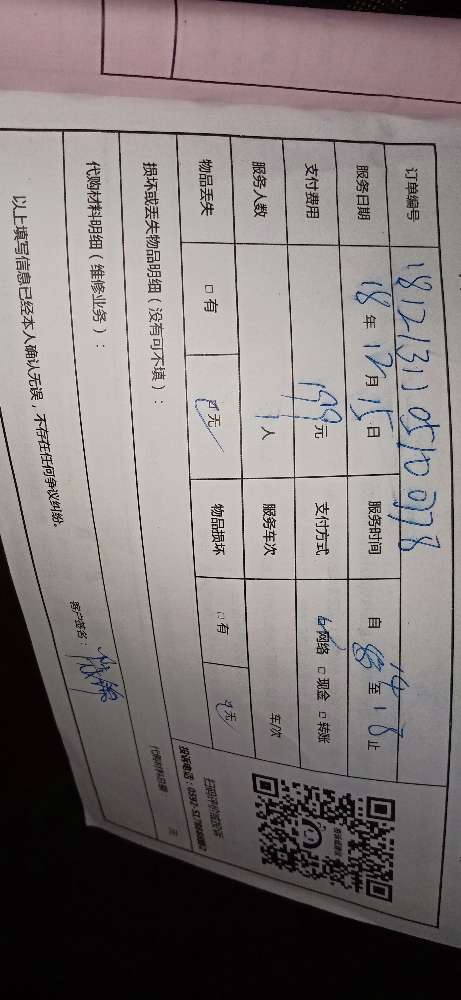 订单编号
服务日期 18 年 12 月 15 日 服务时间 自 14 至 18 止
支付费用 199 元 支付方式 ☑网络 □现金 □转账
服务人数 1 人 服务车次 车/次
物品丢失 □有 ☑无 物品损坏 □有 ☑无
损坏或丢失物品明细（没有可不填）：
代购材料明细（维修业务）：
元
以上填写信息已经本人确认无误，不存在任何争议纠纷。
客户签名：
投诉电话：